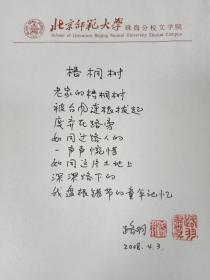 北京师范大学 珠海分校文学院
School of Literature Beijing Normal University Zhuhai Campus
梧桐树
老家的梧桐树
被台风连根拔起
废弃在路旁
如同过路人的
一声声惋惜
如同这片土地上
深深路下的
我盘根错节的童年记忆
2008.4.3.